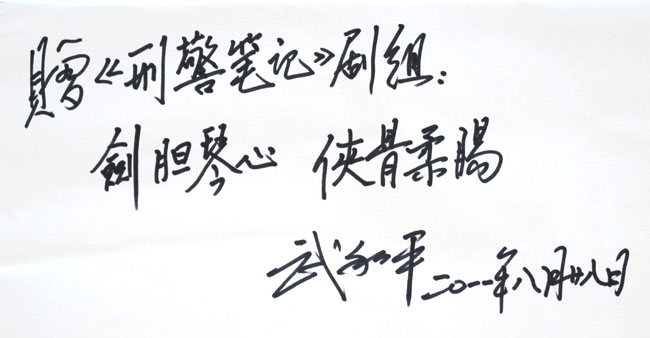 贈《刑警笔记》剧组：
劍胆琴心 俠骨柔腸
武和平 二〇一一年八月廿八日